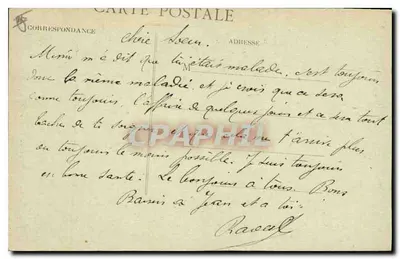 CARTE POSTALE
CORRESPONDANCE
ADRESSE
Chère Soeur.
Mimi m'a dit que tu étais malade. c'est toujours
la même maladie. et je crois que ce sera
comme toujours. l'affaire de quelques jours et ce sera tout
tache de te soigner et que cela ne t'arrive plus
ou toujours le moins possible. Je suis toujours
en bonne santé. Le bonjour à tous. Bons
Baisers à Jean et a toi.
CPAPHIL